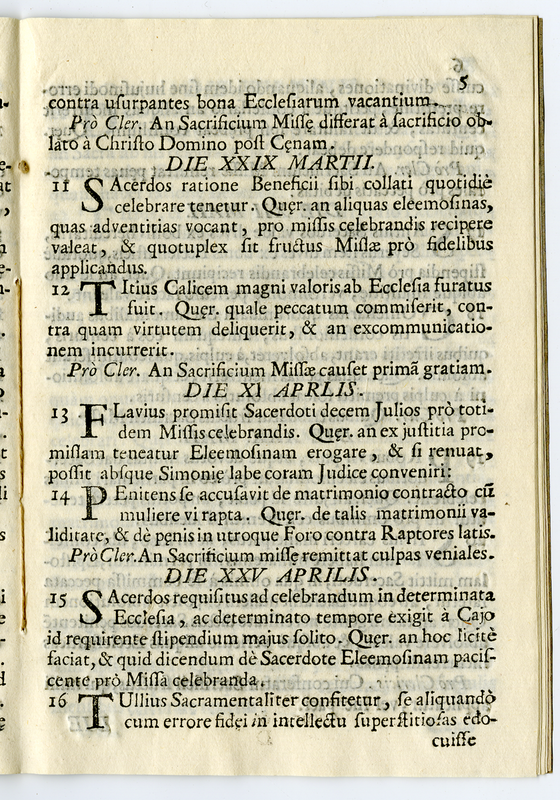 5
contra uſurpantes bona Eccleſiarum vacantium.
Prò Cler. An Sacrificium Miſſę differat à ſacrificio ob-
lato à Chriſto Domino poſt Cęnam.
DIE XXIX MARTII.
11 SAcerdos ratione Beneficii ſibi collati quotidiè
celebrare tenetur. Quęr. an aliquas eleemoſinas,
quas adventitias vocant, pro miſſis celebrandis recipere
valeat, & quotuplex ſit fructus Miſſæ prò fidelibus
applicandus.
12 TItius Calicem magni valoris ab Eccleſia furatus
fuit. Quęr. quale peccatum commiſerit, con-
tra quam virtutem deliquerit, & an excommunicatio-
nem incurrerit.
Prò Cler. An Sacrificium Miſſæ cauſet primā gratiam.
DIE XI APRLIS.
13 FLavius promiſit Sacerdoti decem Julios prò toti-
dem Miſſis celebrandis. Quęr. an ex juſtitia pro-
miſſam teneatur Eleemoſinam erogare, & ſi renuat,
poſſit abſque Simonię labe coram Judice conveniri:
14 PEnitens ſe accuſavit de matrimonio contracto cū
muliere vi rapta. Quęr. de talis matrimonii va-
liditate, & dè pęnis in utroque Foro contra Raptores latis.
Prò Cler. An Sacrificium miſſę remittat culpas veniales.
DIE XXV APRILIS.
15 SAcerdos requiſitus ad celebrandum in determinata
Eccleſia, ac determinato tempore exigit à Cajo
id requirente ſtipendium majus ſolito. Quęr. an hoc licitè
faciat, & quid dicendum dè Sacerdote Eleemoſinam paciſ-
cente prò Miſſà celebranda.
16 TUllius Sacramentaliter confitetur, ſe aliquandò
cum errore fidei in intellectu ſuperſtitioſas edo-
cuiſſe